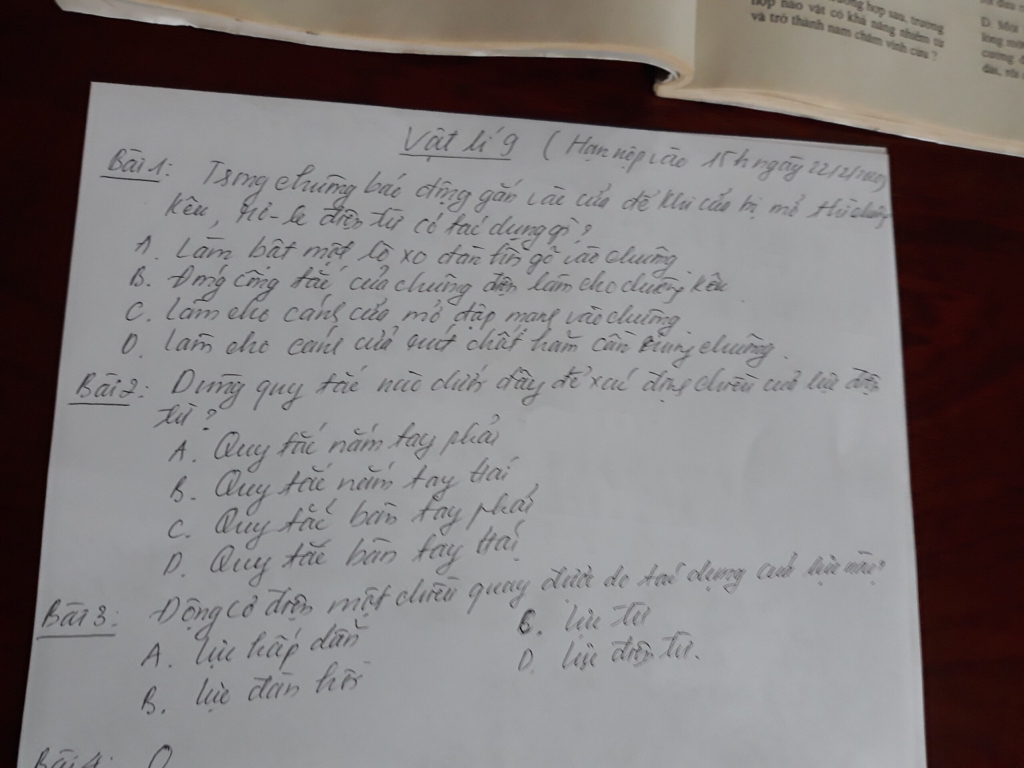 hợp nào vật có khả năng nhiễm từ
và trở thành nam châm vĩnh cửu ?
D. Một
Vật lí 9 ( Hạn nộp vào 15h ngày 22/2/2020)
Bài 1: Trong chuông báo động gắn vào cửa để khi cửa bị mở thì chuông
kêu, rơ-le điện từ có tác dụng gì?
A. Làm bật một lò xo đàn hồi gõ vào chuông
B. Đóng công tắc của chuông điện làm cho chuông kêu
C. Làm cho cánh cửa mở đập mạnh vào chuông
D. Làm cho cánh cửa rút chốt hãm cần rung chuông.
Bài 2: Dùng quy tắc nào dưới đây để xác định chiều của lực điện
từ?
A. Quy tắc nắm tay phải
B. Quy tắc nắm tay trái
C. Quy tắc bàn tay phải
D. Quy tắc bàn tay trái
Bài 3: Động cơ điện một chiều quay được do tác dụng của lực nào?
A. lực hấp dẫn
C. lực từ
B. lực đàn hồi
D. lực điện từ.
Bài 4: